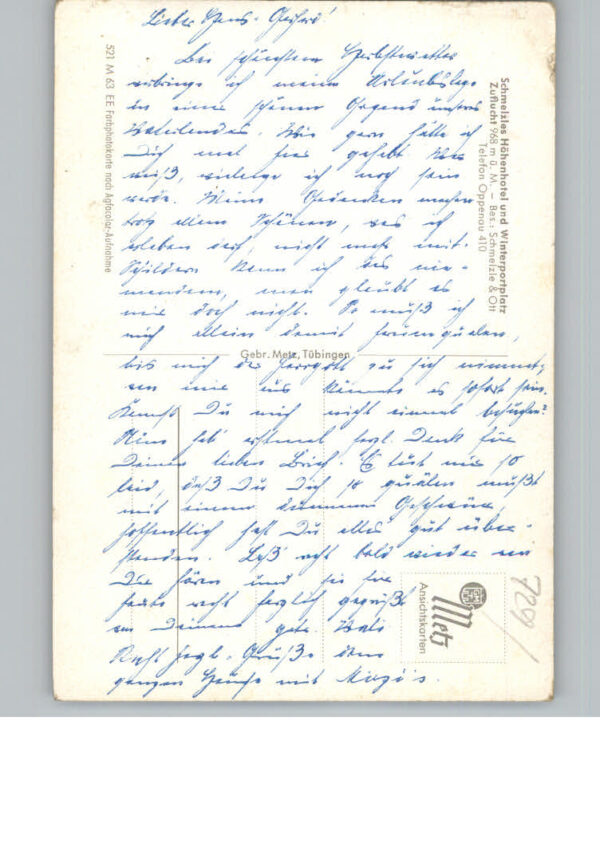 Lieber Hans-Gerhard!
Bei schönstem Herbstwetter
verbringe ich meine Urlaubstage
in einer schönen Gegend unseres
Vaterlandes. Wie gern hätte ich
Dich mal hier gehabt. Wer
weiß, wielange ich noch sein
werde. Meine Gedanken machen
trotz allem Schönen, was ich
erleben darf, nicht mehr mit.
Schildern kann ich das nie-
mandem, man glaubt es
mir doch nicht. So muß ich
mich allein damit herumquälen,
bis mich der Herrgott zu sich nimmt,
von mir aus könnte es sofort sein.
Kannst Du mich nicht einmal besuchen?
Nun hab' erstmal herzl. Dank für
Deinen lieben Brief. Es tut mir so
leid, daß Du Dich so quälen mußt
mit einem dummen Geschwür,
hoffentlich hast Du alles gut über-
standen. Laß recht bald wieder von
Dir hören und sei für
heute recht herzlich gegrüßt
von Deinem
Recht herzl. Grüße dem
ganzen Hause mit
Schmelzles Höhenhotel und Winterportplatz
Zuflucht 968 m ü. M. – Bes.: Schmelzle & Ott
Telefon Oppenau 410
521 M 63 EE Farbphotokarte nach Agfacolor-Aufnahme
Gebr. Metz, Tübingen
Metz
Ansichtskarten